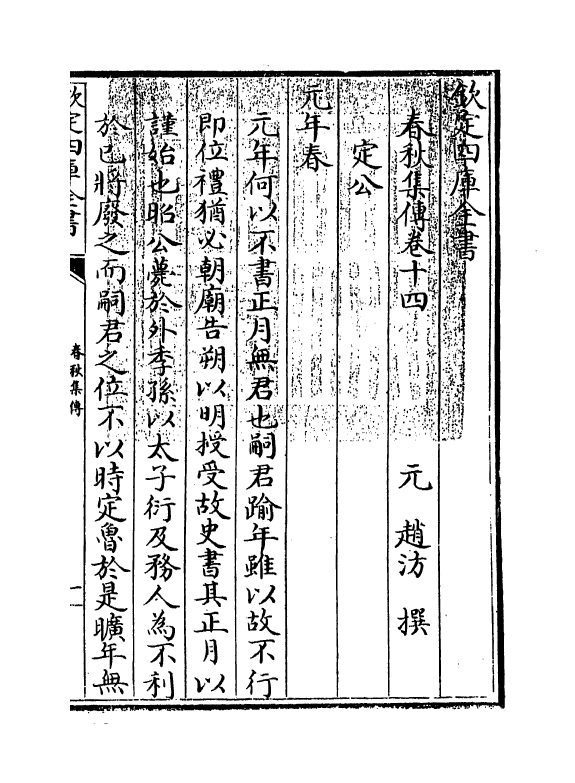 欽定四庫全書
春秋集傳卷十四
元　趙汸　撰
定公
元年春
元年何以不書正月無君也嗣君踰年雖以故不行
即位禮猶必朝廟告朔以明授受故史書其正月以
謹始也昭公薨於外季孫以太子衍及務人為不利
於已將廢之而嗣君之位不以時定魯於是曠年無
欽定四庫全書
春秋集傳
一